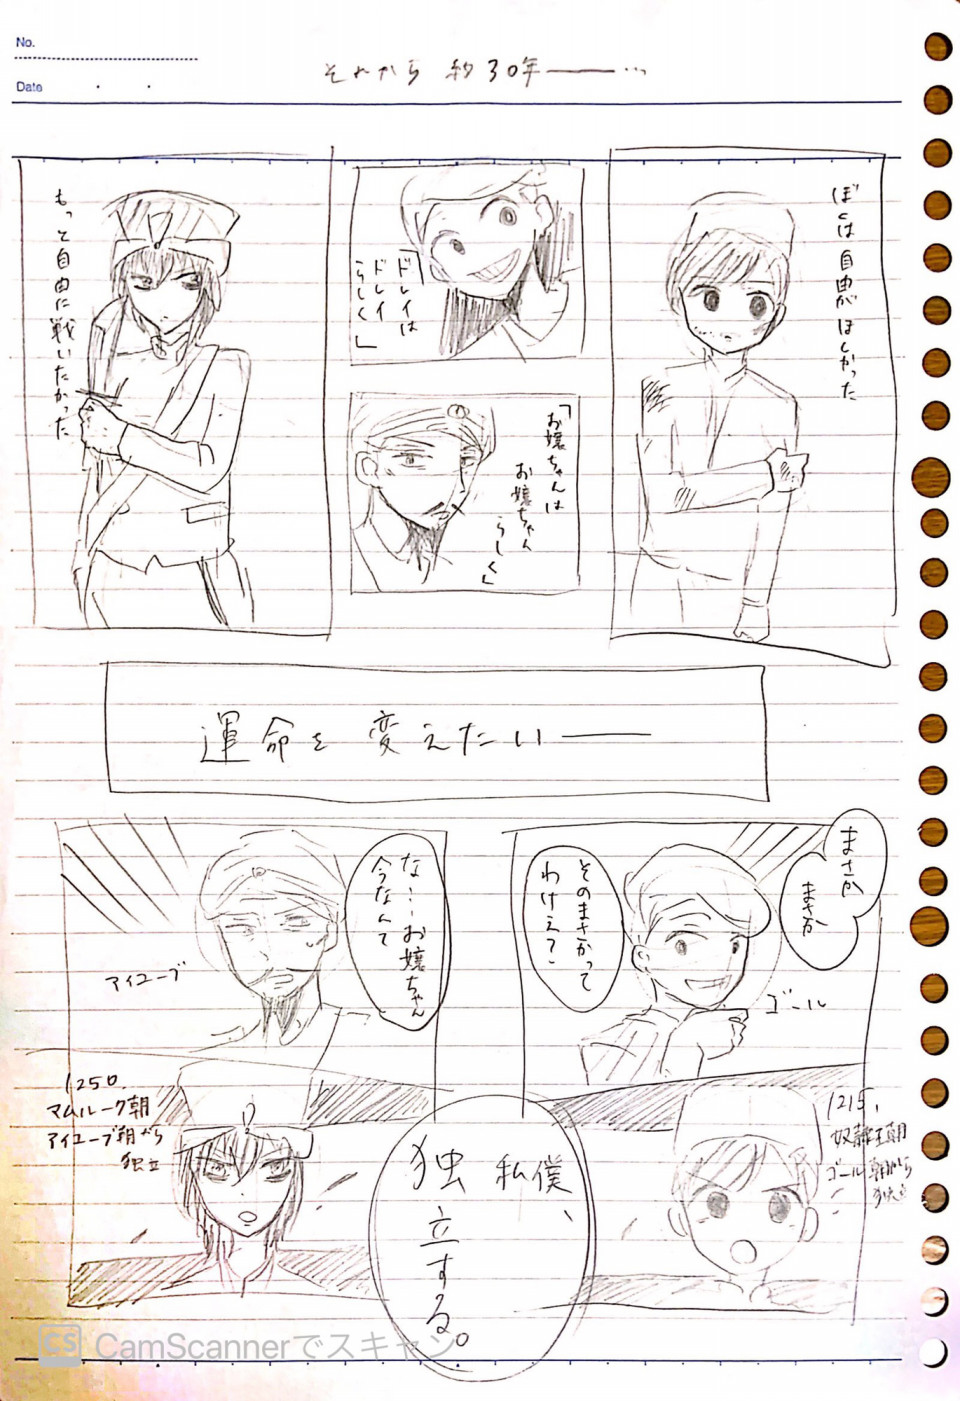 No.
Date
それから 約30年――…
ぼくは自由がほしかった
「ドレイは
ドレイ
らしく」
「お嬢ちゃんは
お嬢ちゃん
らしく」
もっと自由に戦いたかった
運命を変えたい――
まさか
まさか
そのまさかって
わけえ?
ゴール
な…お嬢ちゃん
今なんて
アイユーブ
1215,
奴隷王朝
ゴール朝から
独立
僕、
私
独立する。
1250,
マムルーク朝
アイユーブ朝から
独立
CS CamScannerでスキャン